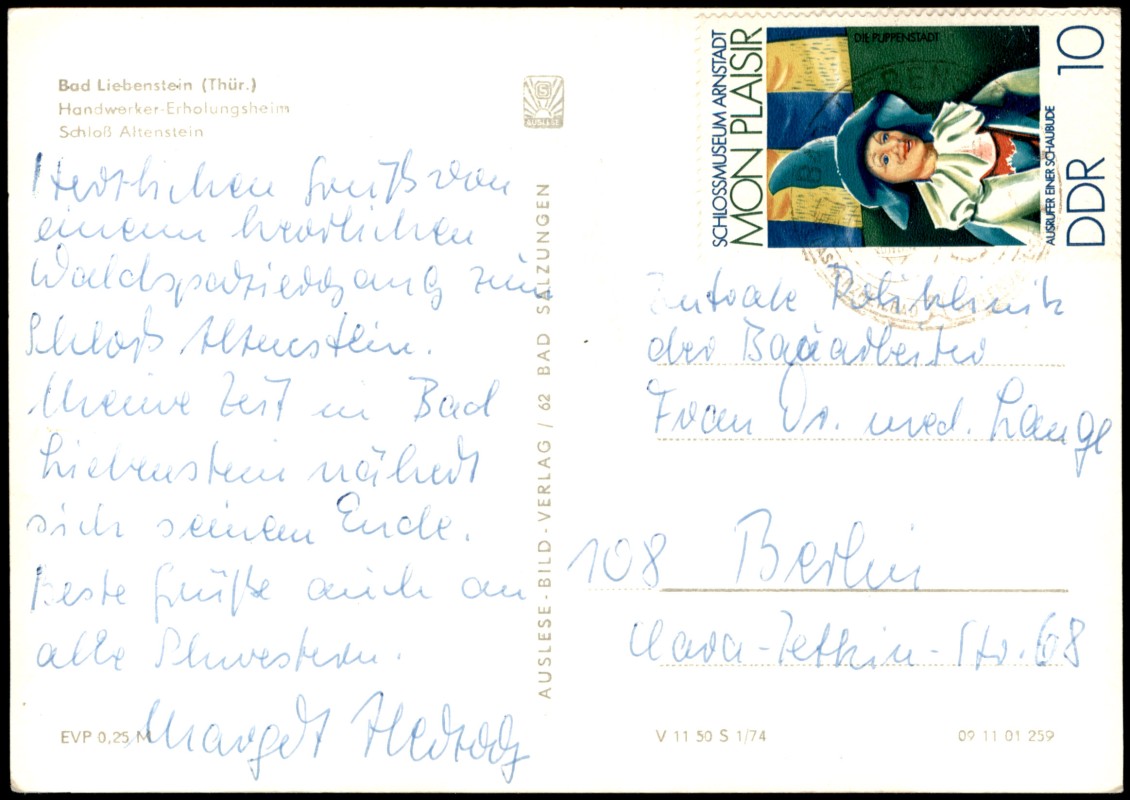 Bad Liebenstein (Thür.)
Handwerker-Erholungsheim
Schloß Altenstein
Herzlichen Gruß von
einem herrlichen
Waldspaziergang zum
Schloß Altenstein.
Meine Zeit in Bad
Liebenstein nähert
sich seinem Ende.
Beste Grüße auch an
alle Schwestern.
Margot
EVP 0,25 M
AUSLESE
AUSLESE-BILD-VERLAG / 62 BAD SALZUNGEN
SCHLOSSMUSEUM ARNSTADT
MON PLAISIR
DIE PUPPENSTADT
AUSRUFER EINER SCHAUBUDE
DDR 10
Zentrale Poliklinik
der Bauarbeiter
Frau Dr. med. Lange
108 Berlin
Clara-Zetkin-Str. 68
V 11 50 S 1/74
09 11 01 259